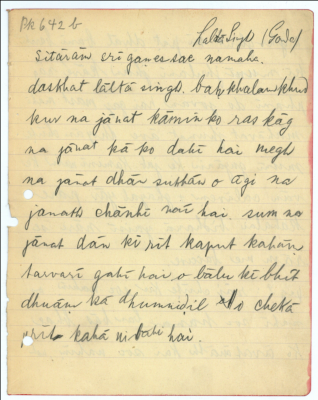 Pk 642 b
Laltā Singh (Goda)
Sitārām srī ganes sae namaha.
daskhat lāltā singh. bakhalam khud
kur na jānat kāmin ko ras kāg
na jānat kā po dahī hai megh
na jānat dhān sukhān o āgi na
jānath chānhi naī hai. sum na
jānat dān kī rīt kaput kahān
tarvarī gahī hai o bālu kī bhīt
dhuām kā
prīt kahā nibahī hai.